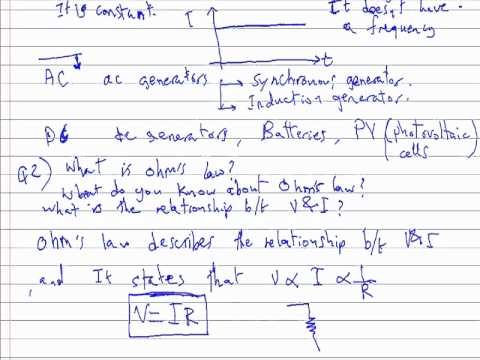 It is constant.
I
t
It doesn't have
a frequency
AC ac generators → Synchronous generator.
→ Induction generator.
DC dc generators, Batteries, PV (photovoltaic cells
Q2) what is ohm's law?
what do you know about ohm's law?
what is the relationship b/t V & I ?
ohm's law describes the relationship b/t V & I
, and It states that V ∝ I ∝ 1/R
V = I R